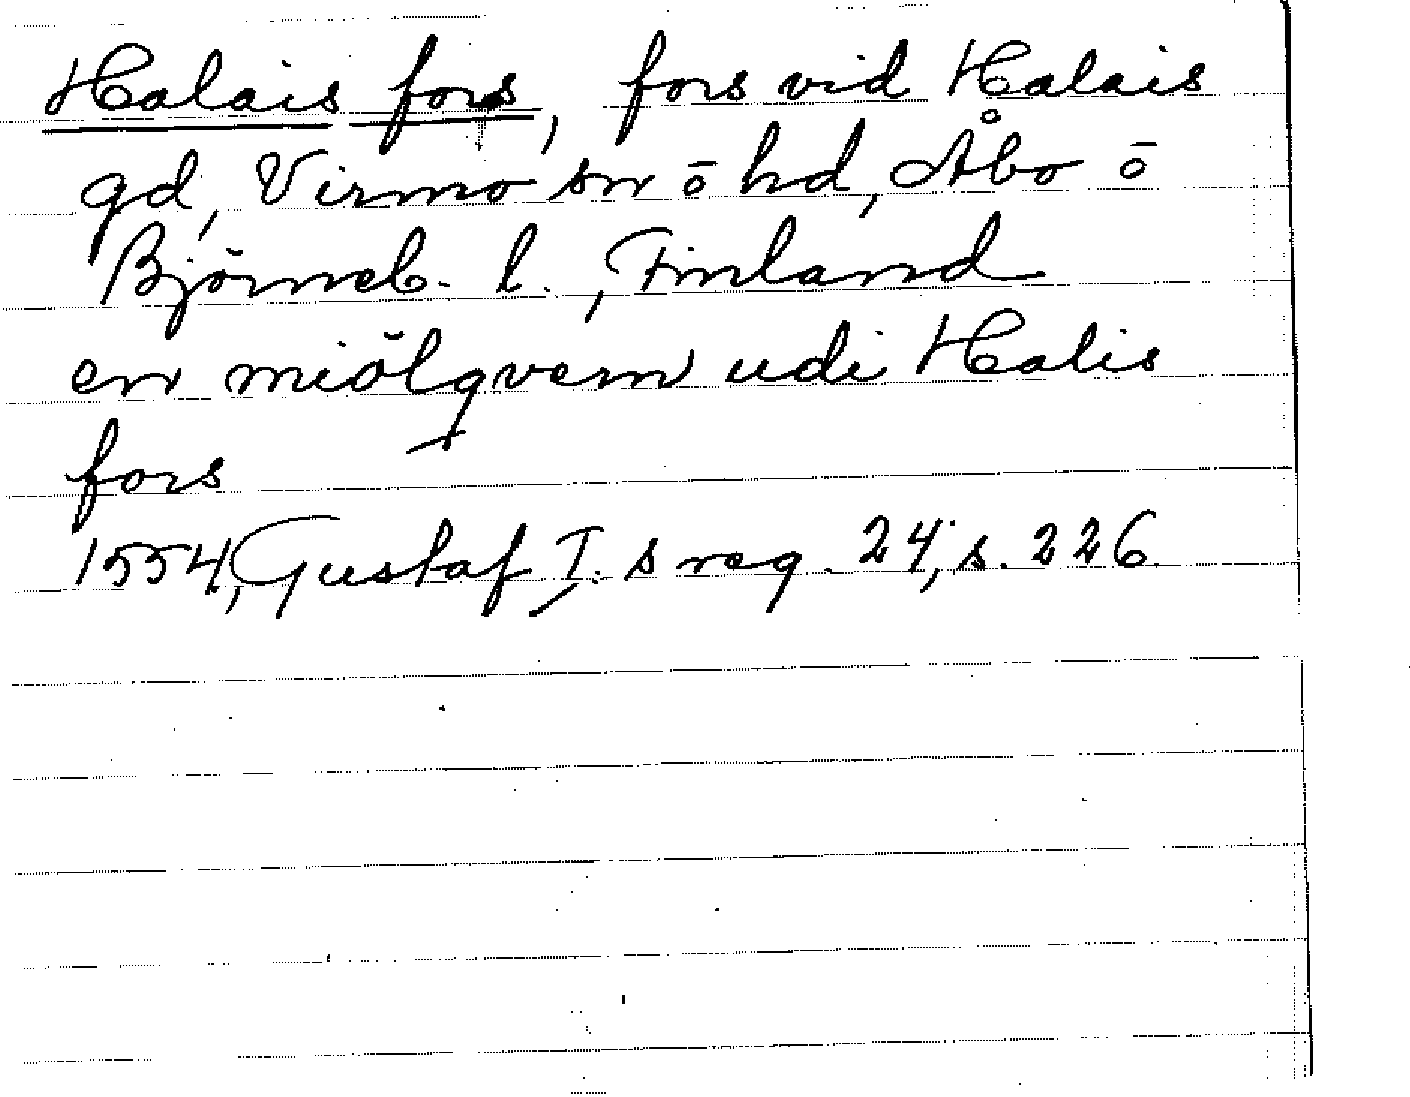 Halais fors, fors vid Halais
gd, Virmo sn ō hd, Åbo ō
Björneb. l., Finland
en miölqvern udi Halis
fors
1554, Gustaf I:s reg. 24, s. 226